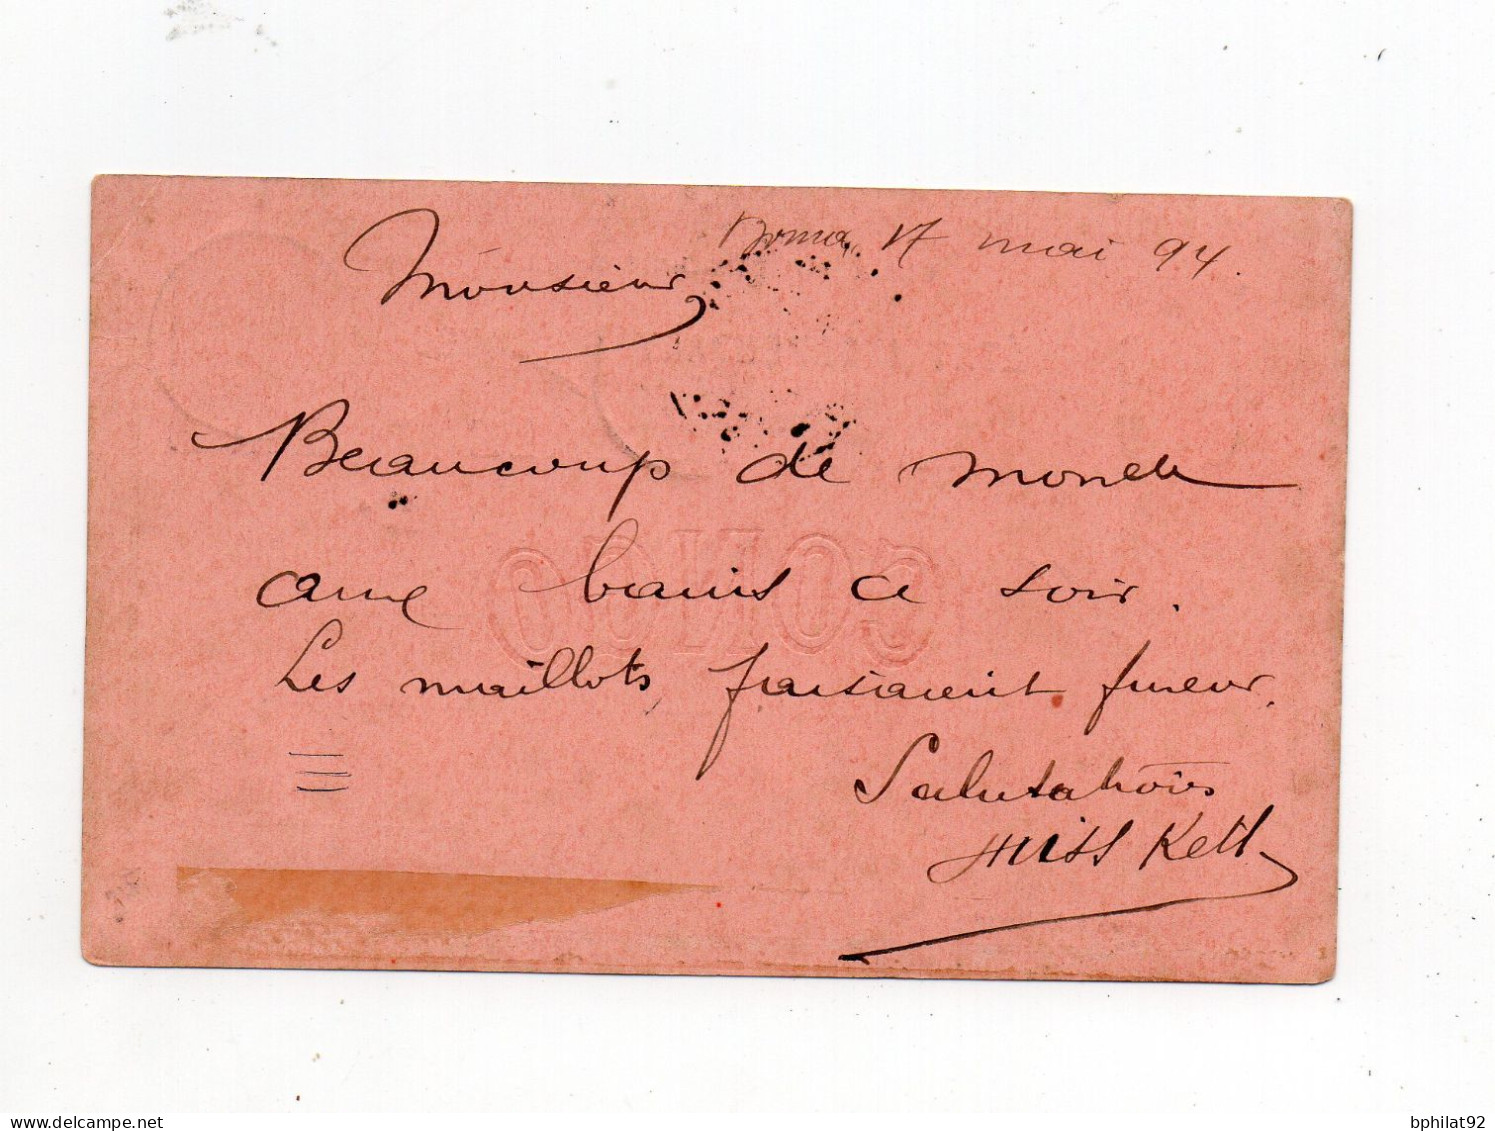 Boma, 17 mai 94.
Monsieur,
Beaucoup de monde
aux bains ce soir.
Les maillots, faisaient fureur.
Salutations
Miss Kett
CONGO
bphilat92